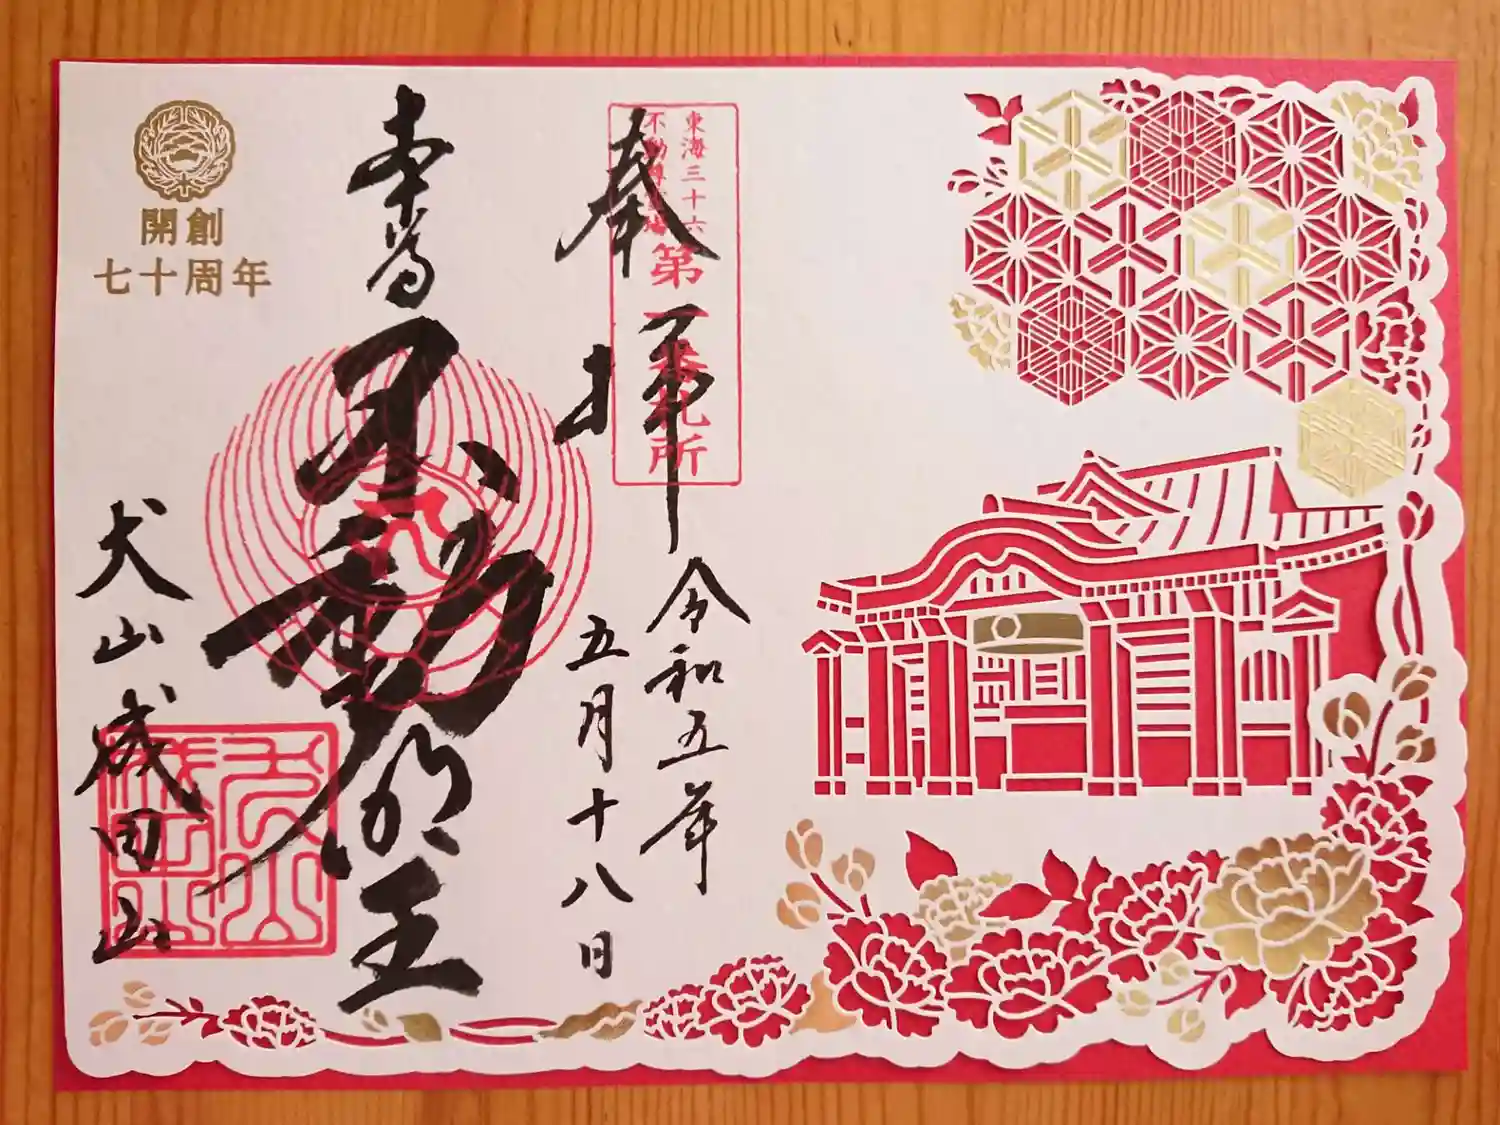 東海三十六
不動尊霊場
第一番札所
奉拝
令和五年
五月十八日
本尊
不動明王
開創
七十周年
犬山成田山